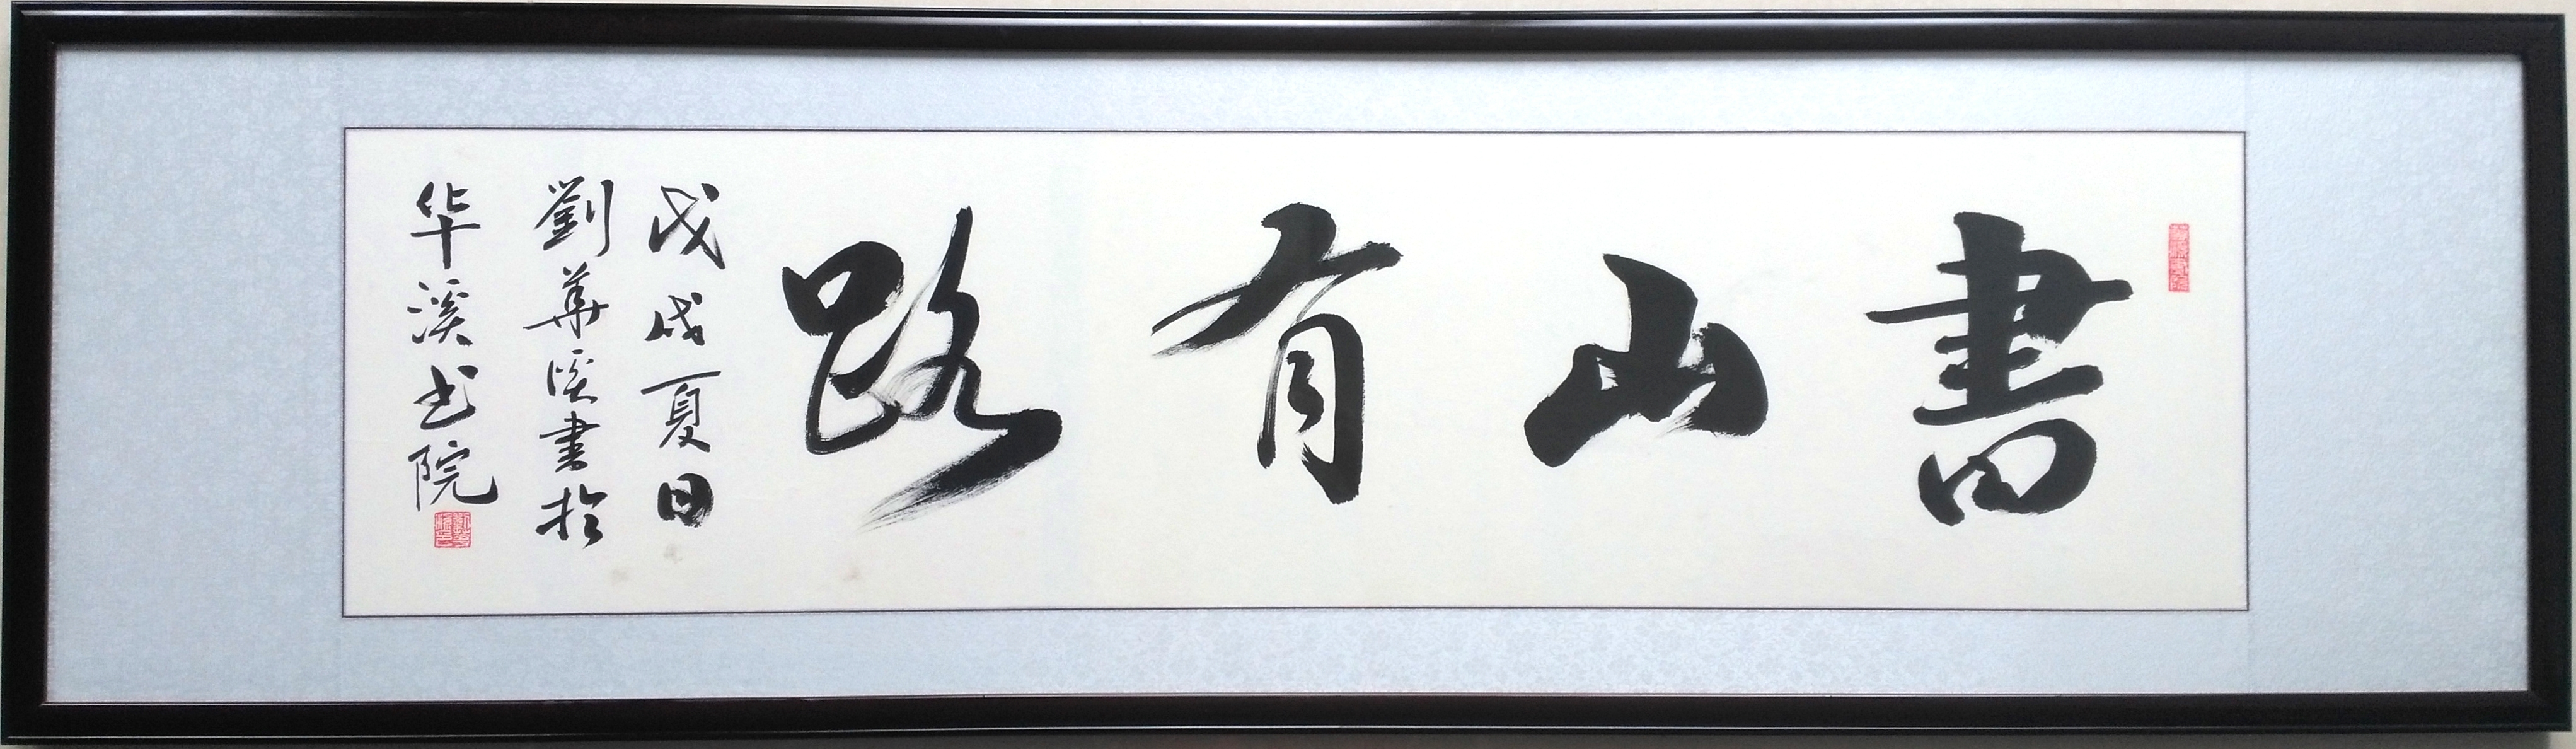 書山有路
戊戌夏日
劉華溪書於
华溪书院